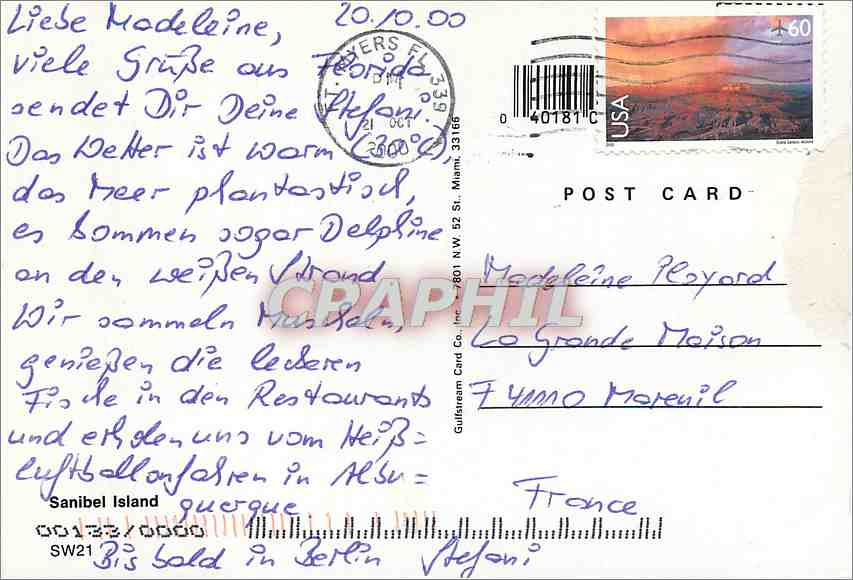 Liebe Madeleine, 20.10.00
viele Grüße aus Florida
sendet Dir Deine Stefani.
Das Wetter ist warm (30°C),
das Meer phantastisch,
es kommen sogar Delphine
an den weißen Strand
Wir sammeln Muscheln,
genießen die leckeren
Fische in den Restaurants
und erholen uns vom Heiß=
luftballonfahren in Albu=
querque
Bis bald in Berlin Stefani
Sanibel Island
00133/0000
SW21
FT. MYERS FL 339
PM
21 OCT
2000
0 40181 C
60
USA
POST CARD
Gulfstream Card Co., Inc. • 7801 N.W. 52 St., Miami, 33166
Madeleine Ployard
La Grande Maison
F 41110 Mareuil
France
CPAPHIL